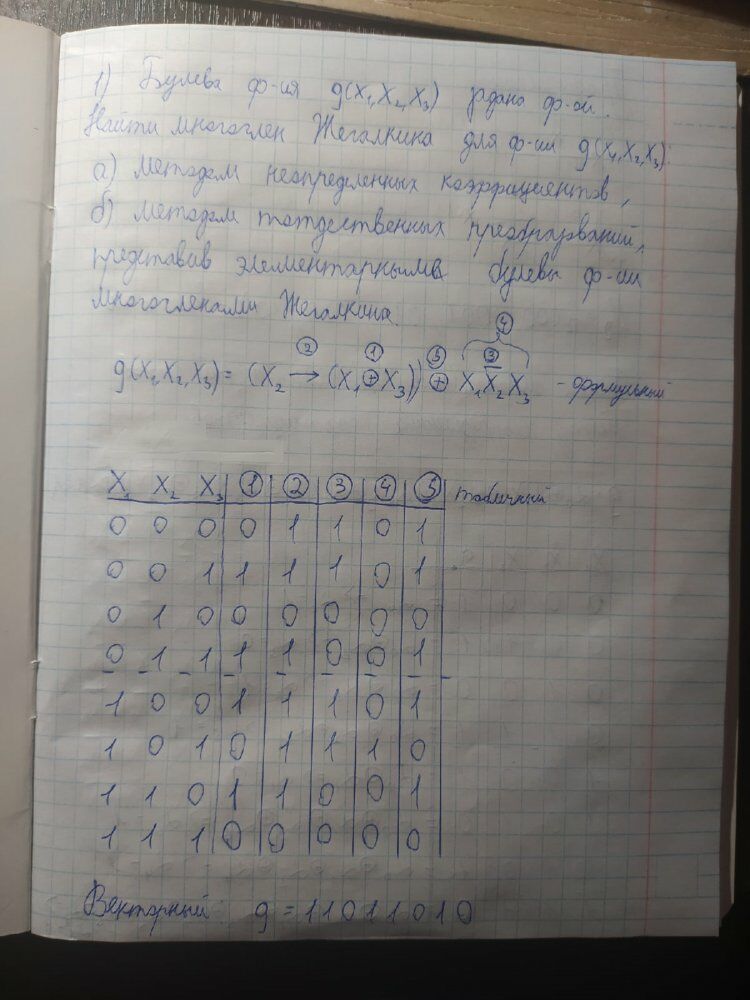 1) Булева ф-ия g(X₁,X₂,X₃) задана ф-ой.
Найти многочлен Жегалкина для ф-ии g(X₁,X₂,X₃):
а) методом неопределенных коэффициентов,
б) методом тождественных преобразований,
представив элементарными булевы ф-ии
многочленами Жегалкина.
④
② ① ⑤ ③
g(X₁,X₂,X₃) = (X₂ → (X₁ ⊕ X₃)) ⊕ X₁X̅₂X₃ - формульный
X₁ X₂ X₃ ① ② ③ ④ ⑤ табличный
0 0 0 0 1 1 0 1
0 0 1 1 1 1 0 1
0 1 0 0 0 0 0 0
0 1 1 1 1 0 0 1
1 0 0 1 1 1 0 1
1 0 1 0 1 1 1 0
1 1 0 1 1 0 0 1
1 1 1 0 0 0 0 0
Векторный: g = 11011010